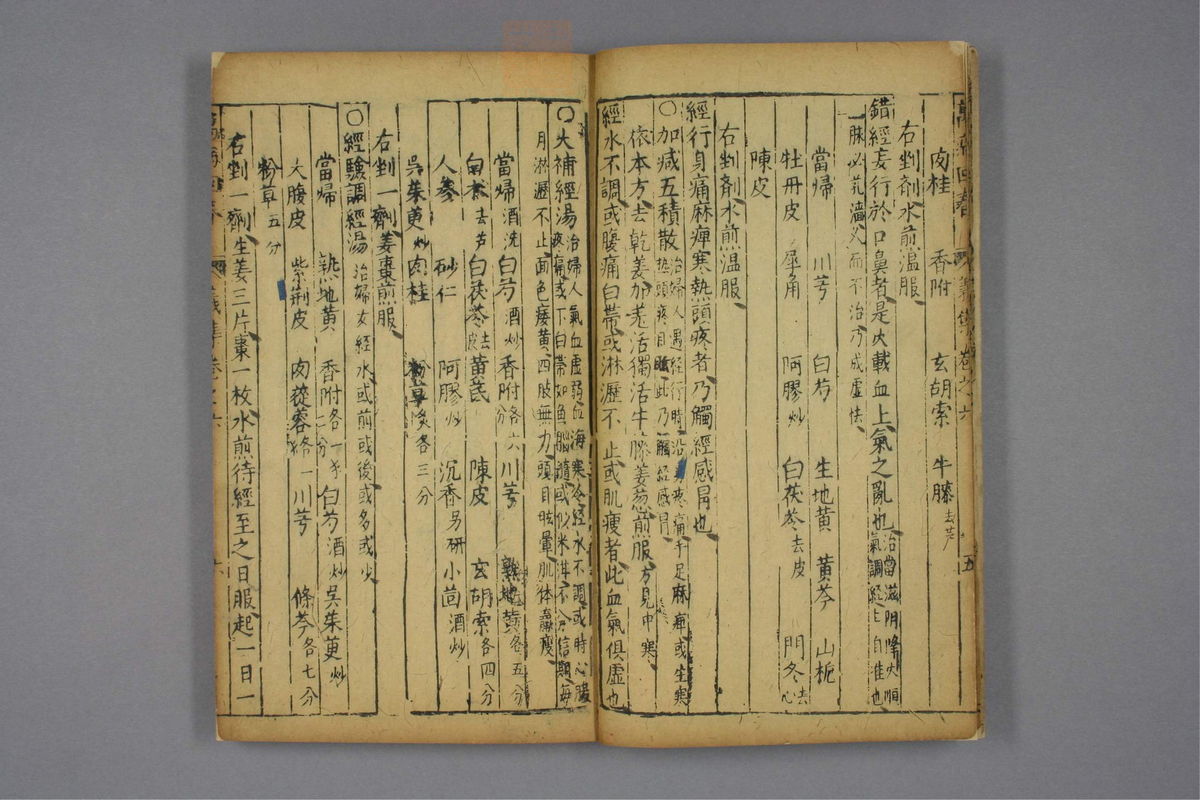 萬病回春 卷之六 五
肉桂 香附 玄胡索 牛膝去芦
右剉劑水煎温服
錯經妄行於口鼻者是火載血上氣之亂也治當滋阴降火順氣調經
當歸 川芎 白芍 生地黄 黄芩 山栀
牡丹皮 犀角 阿膠炒 白茯苓去皮 門冬去心
陳皮
右剉劑水煎温服
經行身痛麻痺寒熱頭疼者乃觸經感冐也
〇加减五積散治婦人遇經行時沿身疼痛手足麻痺或生寒熱頭疼目眩此乃觸經感冐
依本方去乾姜加羗活獨活牛膝姜葱煎服方見中寒
經水不調或腹痛白帶或淋瀝不止或肌瘦者此血氣俱虚也
〇大補經湯治婦人氣血虚弱血海寒冷經水不調或時心腹疼痛或下白帶如魚腦髓或似米泔不分信期每
月淋瀝不止面色痿黄四肢無力頭目眩暈肌体羸瘦
當歸酒洗 白芍酒炒 香附各六分 川芎 熟地黄各五分
白朮去芦 白茯苓去皮 黄芪 陳皮 玄胡索各四分
人參 砂仁 阿膠炒 沉香另研 小茴酒炒
吳茱萸炒 肉桂 粉草炙各三分
右剉一劑姜棗煎服
〇經驗調經湯治婦女經水或前或後或多或少
當歸 熟地黄 香附各一錢二分 白芍酒炒 吳茱萸炒
大腹皮 紫荆皮 肉蓯蓉各一 川芎 條芩各七分
粉草五分
右剉一劑生姜三片棗一枚水煎待經至之日服起一日一